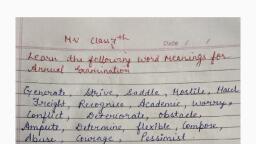 Class 7th
Date / /
Learn the following word meanings for
Annual Examination
Generate, Strive, Saddle, Hostile, Haul
Freight, Recognise, Academic, worry,
Conflict, Deteriorate, obstacle,
Determine, flexible, Compose,
Abuse, Courage, Pessimist